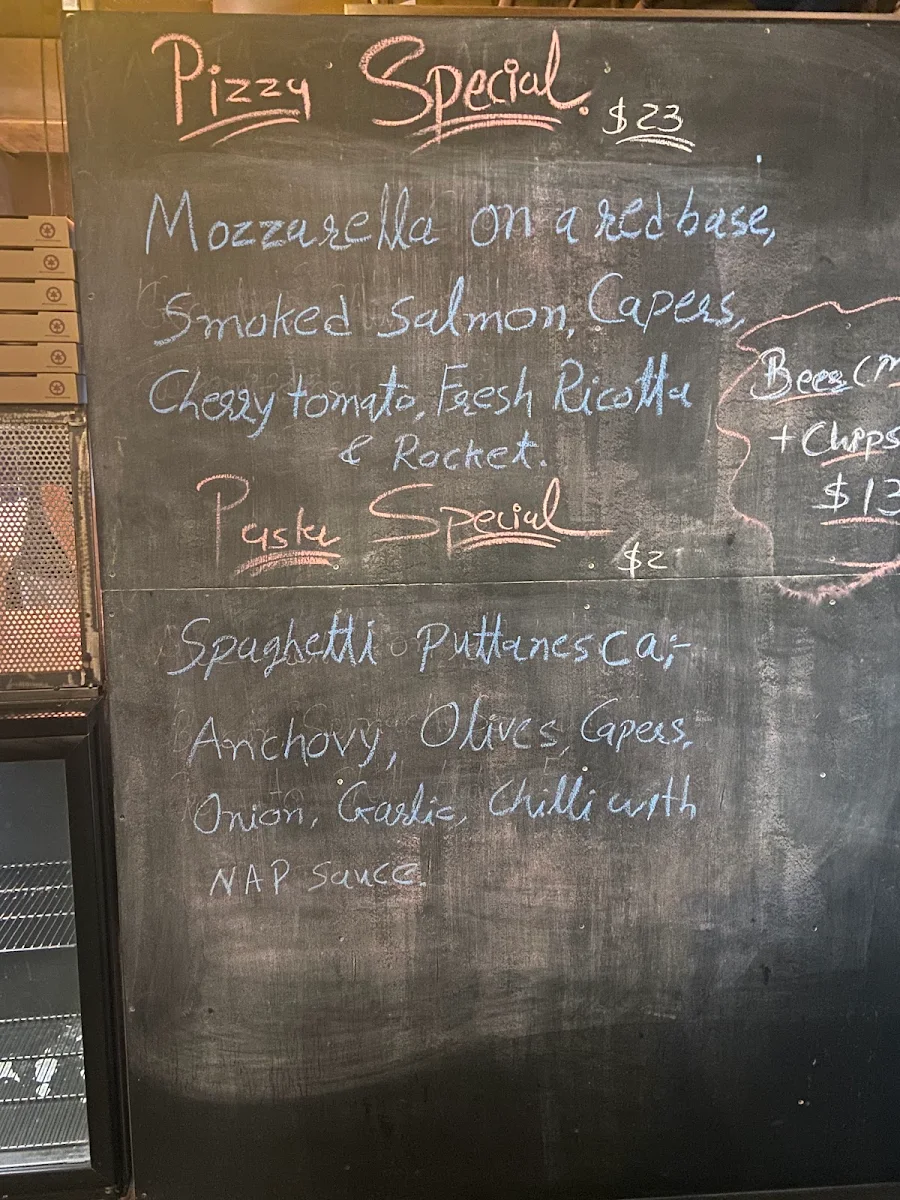 Pizzy Special.
$23
Mozzarella on a red base,
Smoked Salmon, Capers,
Cherry tomato, Fresh Ricotta
& Rocket.
Beer (M
+ Chips
$13
Pasta Special
$2
Spaghetti Puttanesca;-
Anchovy, Olives, Capers,
Onion, Garlic, Chilli with
NAP sauce.